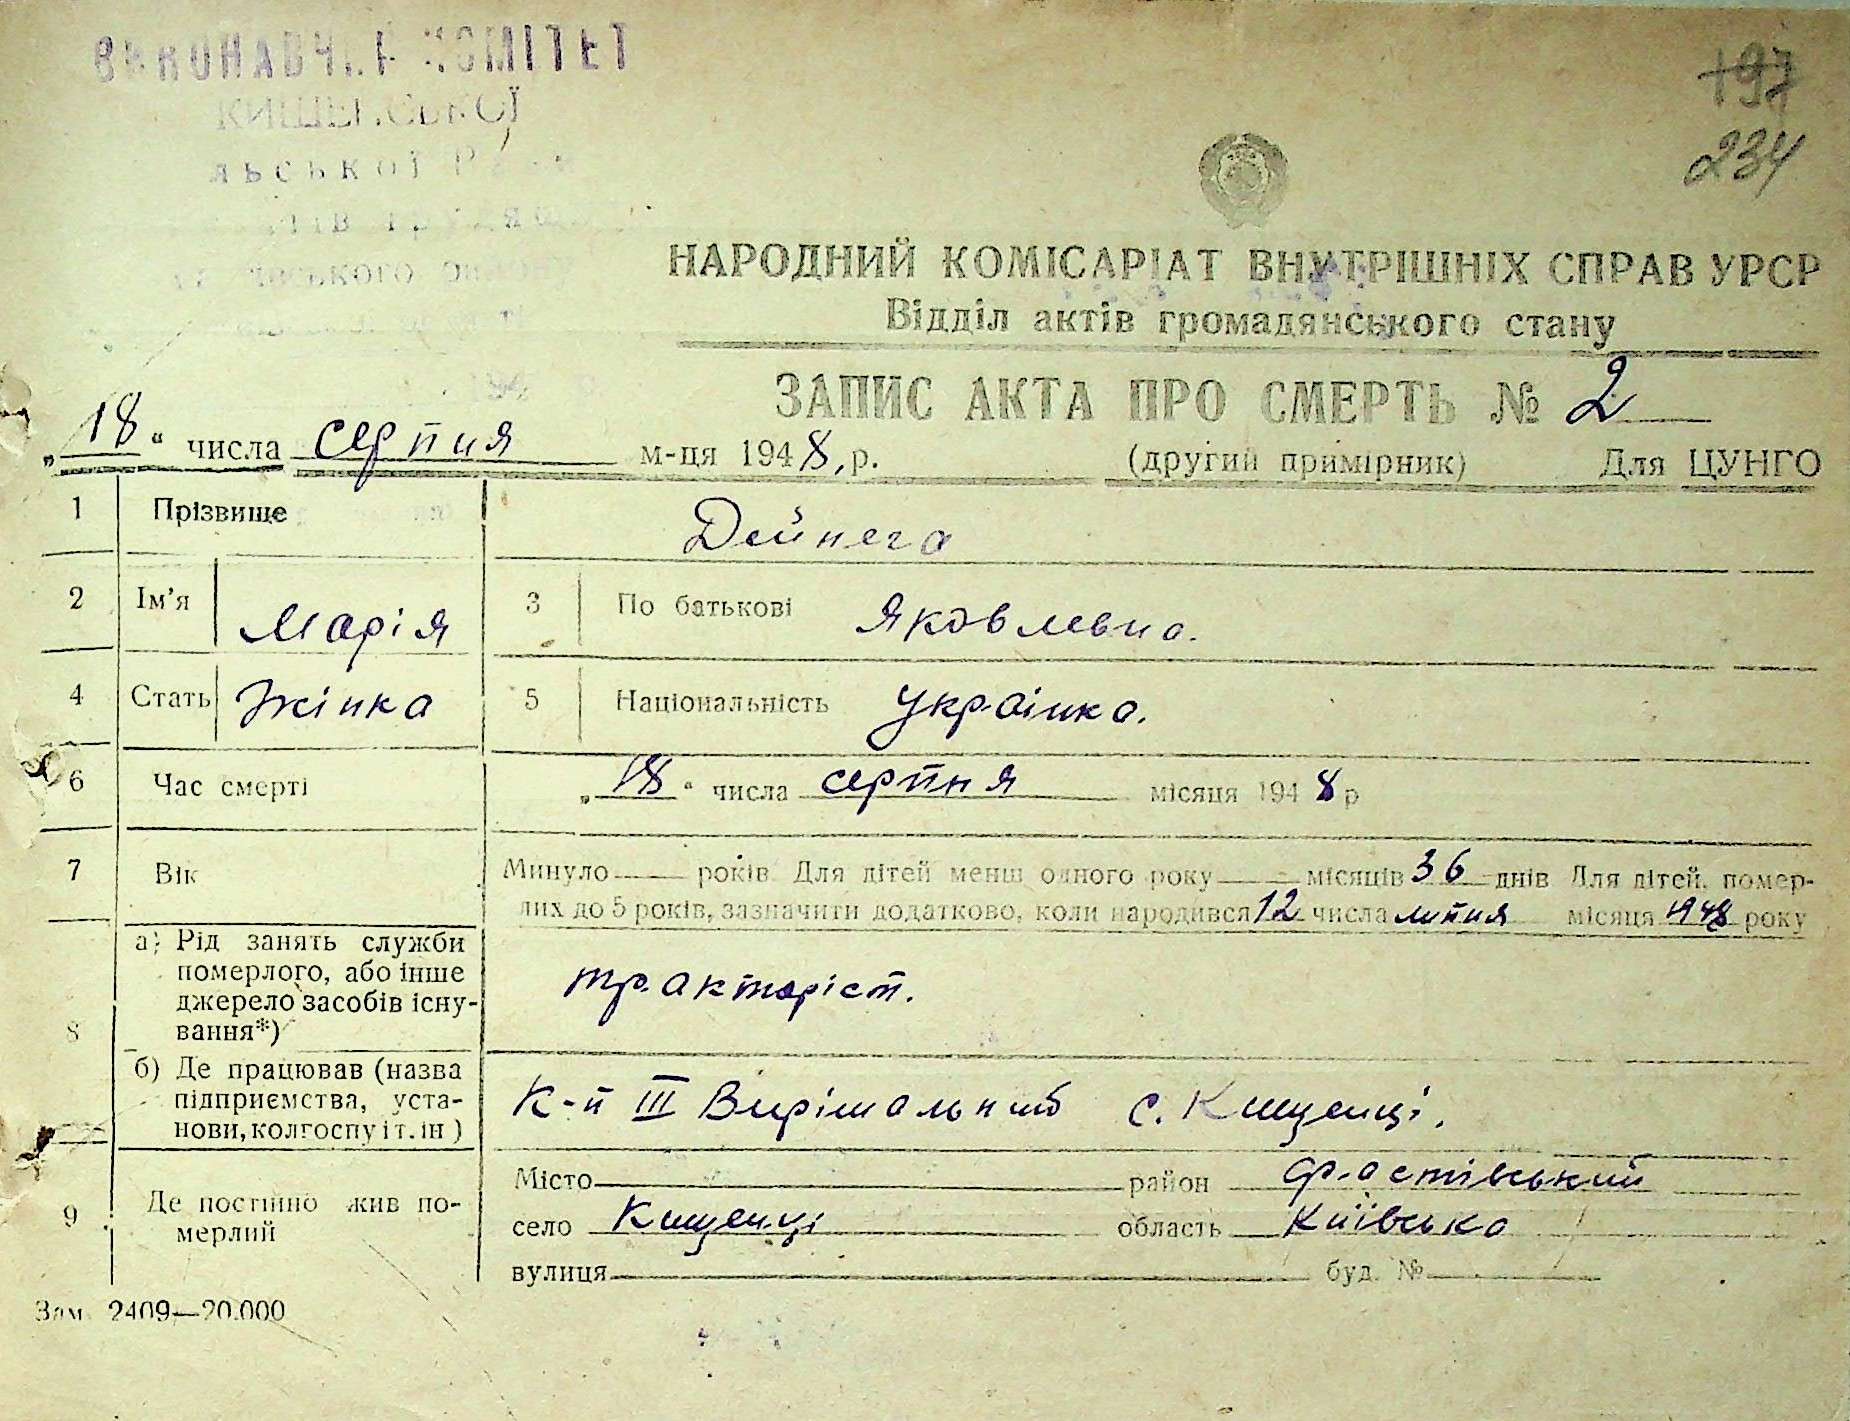 ВИКОНАВЧИЙ КОМІТЕТ
197
234
НАРОДНИЙ КОМІСАРІАТ ВНУТРІШНІХ СПРАВ УРСР
Відділ актів громадянського стану
ЗАПИС АКТА ПРО СМЕРТЬ № 2
„18“ числа серпня м-ця 1948, р. (другий примірник) Для ЦУНГО
1 Прізвище Дейнега
2 Ім’я Марія 3 По батькові Яковлевна.
4 Стать Жінка 5 Національність Українка.
6 Час смерті „18“ числа серпня місяця 1948 р
7 Вік Минуло років Для дітей менш одного року місяців 36 днів Для дітей, помер-
лих до 5 років, зазначити додатково, коли народився 12 числа липня місяця 1948 року
8 а) Рід занять служби
померлого, або інше
джерело засобів існу-
вання*) тракторіст.
б) Де працював (назва
підприємства, уста-
нови, колгоспу і т. ін) К-п III Вирішальний с. Кищенці.
9 Де постійно жив по-
мерлий
Місто район Фастівський
село Кищенці область Київська
вулиця буд. №
Зам. 2409—20.000